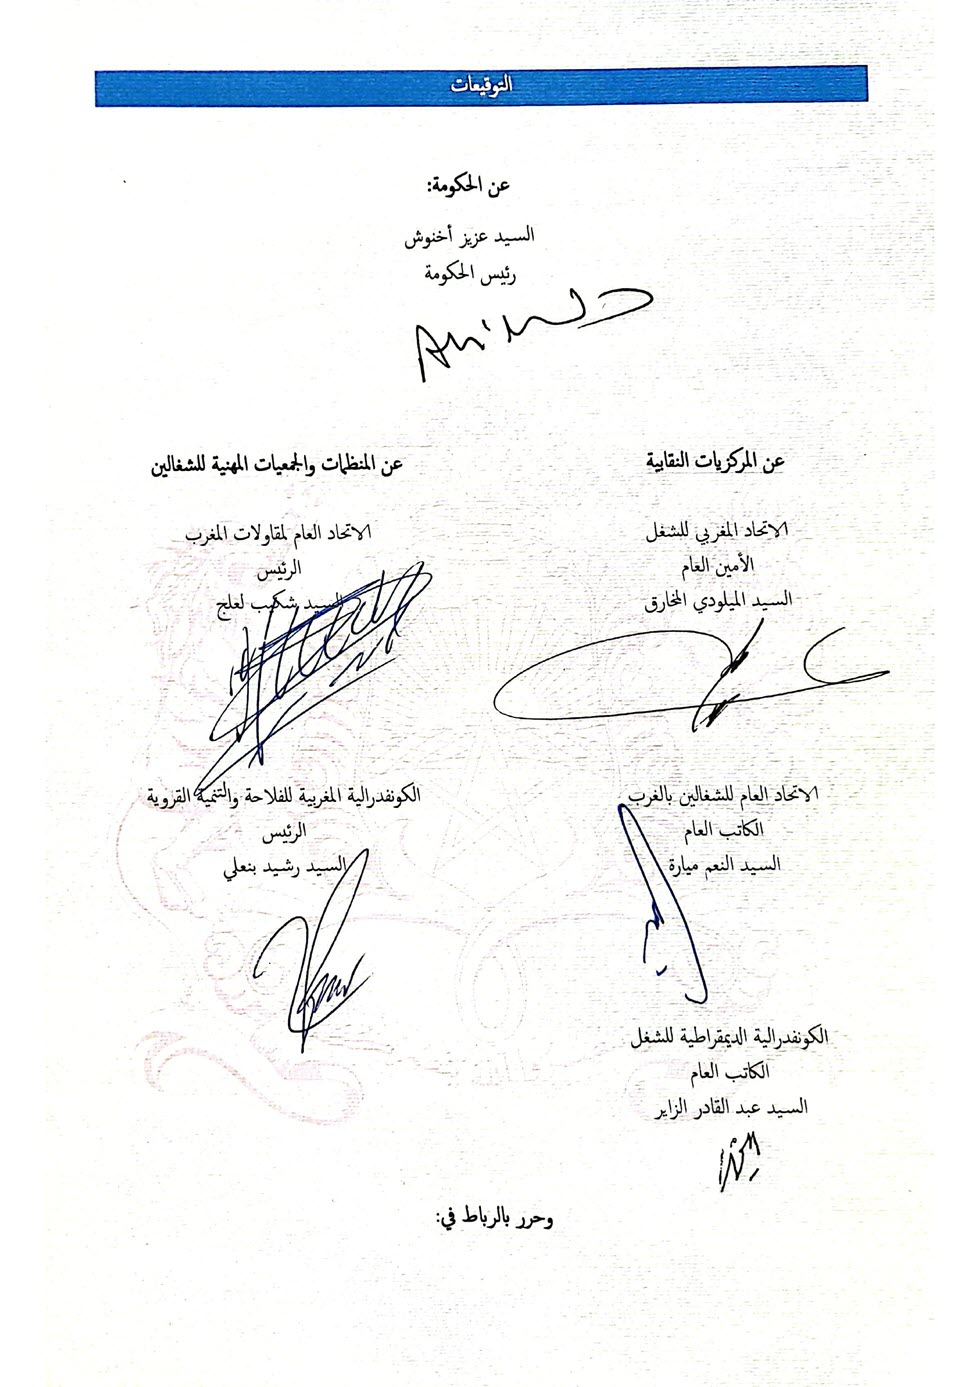 التوقيعات
عن الحكومة:
السيد عزيز أخنوش
رئيس الحكومة
عن المركزيات النقابية
الاتحاد المغربي للشغل
الأمين العام
السيد الميلودي المخارق
الاتحاد العام للشغالين بالغرب
الكاتب العام
السيد النعم ميارة
الكونفدرالية الديمقراطية للشغل
الكاتب العام
السيد عبد القادر الزاير
عن المنظمات والجمعيات المهنية للشغالين
الاتحاد العام لمقاولات المغرب
الرئيس
السيد شكيب لعلج
الكونفدرالية المغربية للفلاحة والتنمية القروية
الرئيس
السيد رشيد بنعلي
وحرر بالرباط في: